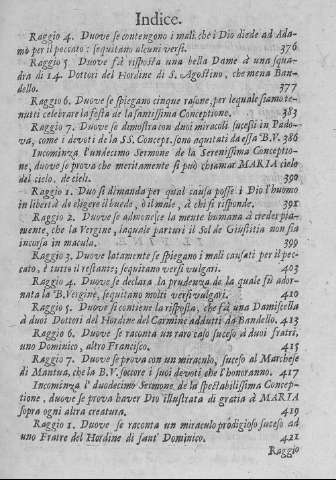 Indice.
Raggio 4. Duove se contengono i mali che i Dio diede ad Ada-
mo per il peccato: sequitano alcuni versi. 376
Raggio 5. Duove stà risposta una bella Dame à una squa-
dra di 14. Dottori del Hordine di S. Agostino, che mena Ban-
dello. 377
Raggio 6. Duove se spiegano cinque rasone, per lequale siamo te-
nutti celebrare la festa de la santissima Conceptione. 383
Raggio 7. Duove se demostra con duoi miracoli sucessi in Pado-
va, come i devoti de la SS. Concept. sono aquitati da essa B.V. 386
Incominza l'undecimo Sermone de la Serenissima Conceptio-
ne, duove se prova che meritamente si può chiamar MARIA cielo
del cielo, de cieli. 390
Raggio 1. Duo si dimanda per qual causa posse i Dio l'huomo
in libertà de elegere il buedo, ò il male, à che si risponde. 391
Raggio 2. Duove se admonesce la mente humana à creder pia-
mente, che la Vergine, laquale parturì il Sol de Giustitia non sia
incorsa in macula. 399
Raggio 3. Duove latamente se spiegano i mali causati per il pec-
cato, è tutto il restante; sequitano versi vulgari. 403
Raggio 4. Duove se declara la prudenza de la quale fù ador-
nata la B. Vergine, sequitano molti versi vulgari. 410
Raggio 5. Duove si contiene la risposta, che fà una Damiscella
à duoi Dottori del Hordine del Carmine addutti da Bandello. 413
Raggio 6. Duove se raconta un raro caso suceso à duoi fratri,
uno Dominico, altro Francisco. 415
Raggio 7. Duove se prova con un miraculo, suceso al Marchese
di Mantua, che la B.V. socore i suoi devoti che l'honoranno. 417
Incominza l'duodecimo Sermone de la spectabilissima Concep-
tione, duove se prova haver Dio illustrata di gratia à MARIA
sopra ogni altra creatura. 419
Raggio 1. Duove se raconta un miraculo prodigioso suceso ad
uno Fratre del Hordine di sant' Dominico. 421
Raggio